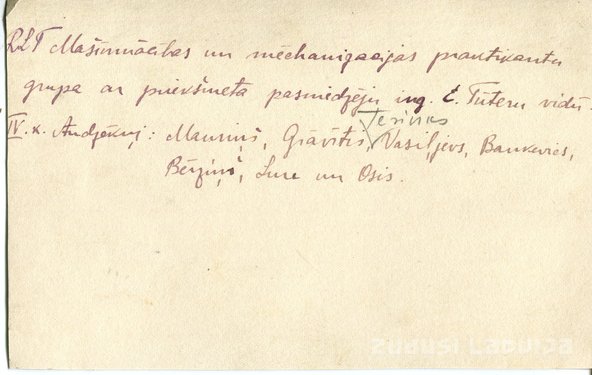 RLT Mašīnmācības un mēchanizacijas praktikantu
grupa ar priekšmeta pasniedzēju ing. E. Tūteru vidū.
IV. k. Audzēkņi: Mauriņš, Grāvītis, Vasiļjevs, Bankevics,
Bērziņš, Lure un Osis.
zudusi Latvija